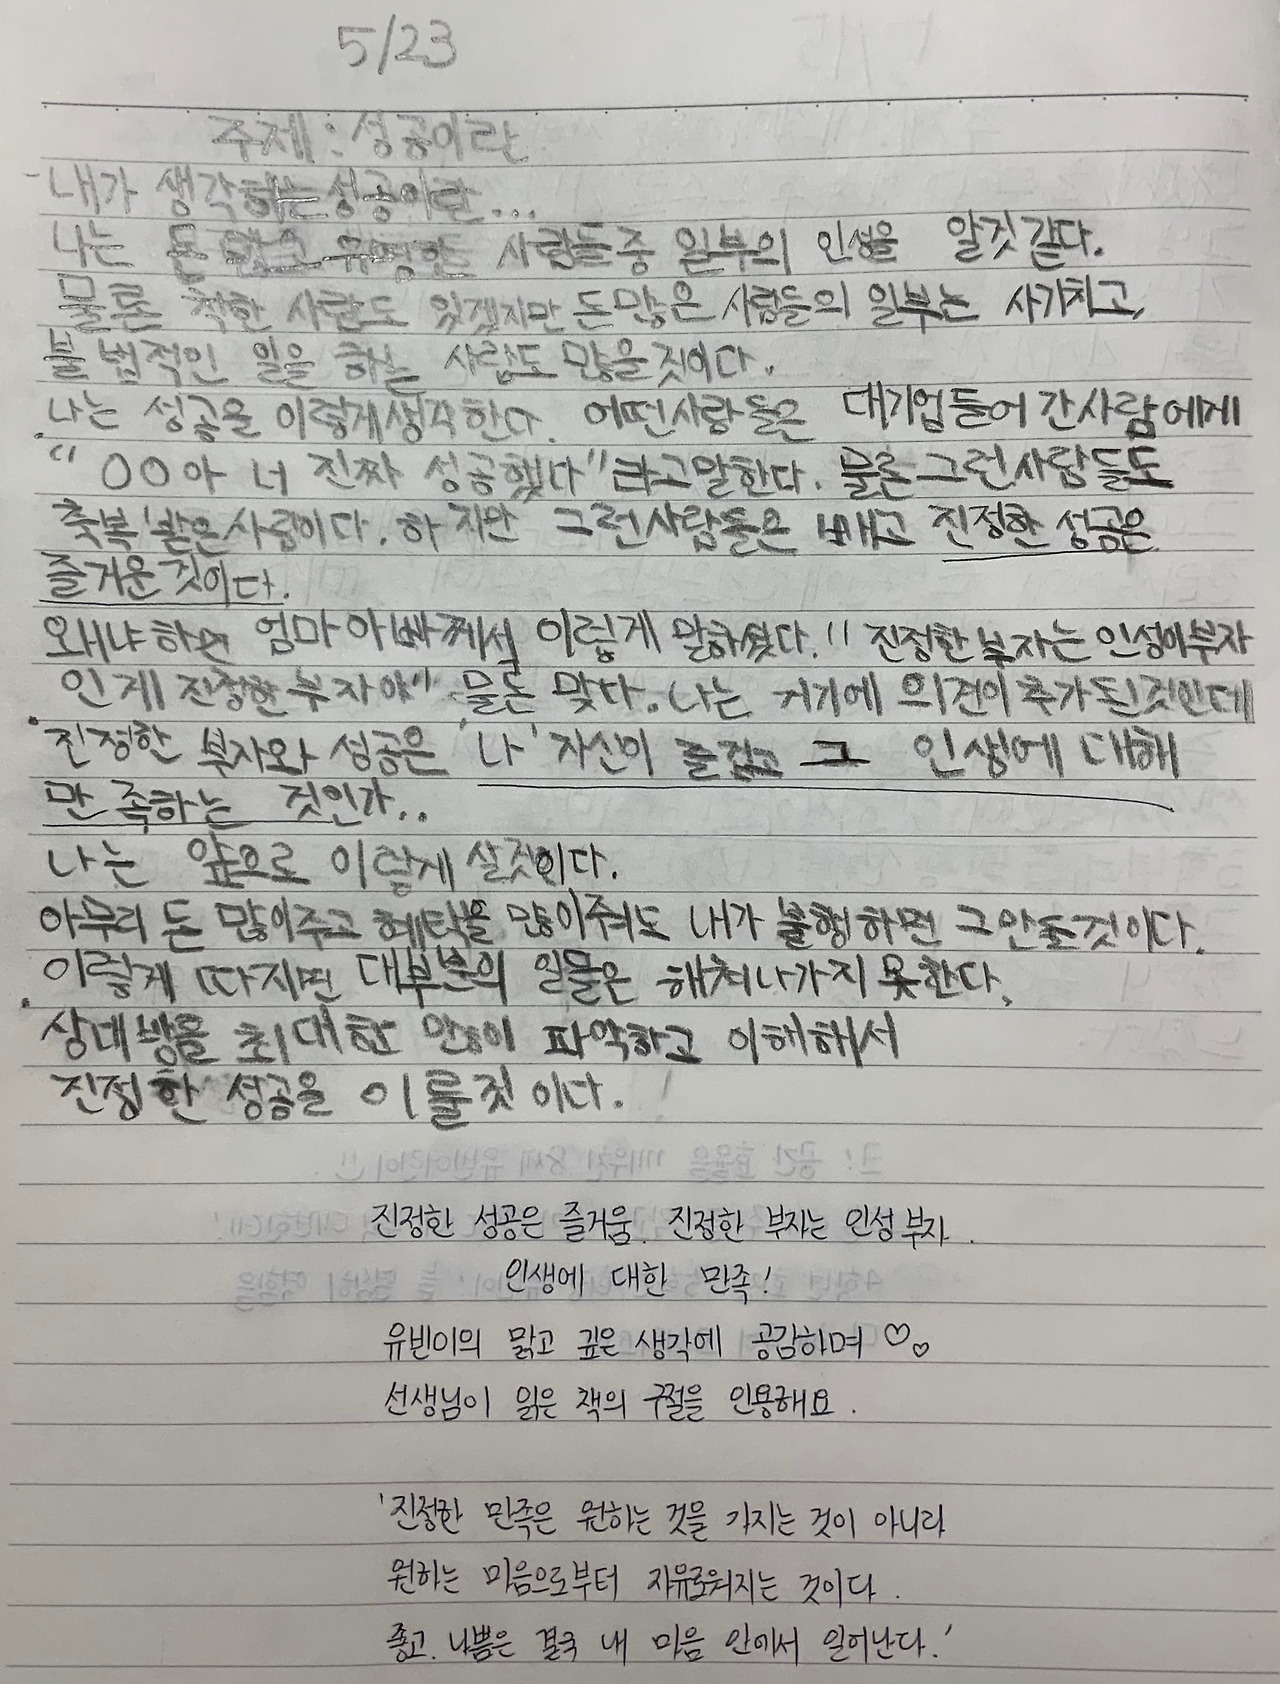 5/23
주제 : 성공이란
내가 생각하는 성공이란...
나는 돈 많고 유명한 사람들 중 일부의 인성을 알것 같다.
물론 착한 사람도 있겠지만 돈많은 사람들의 일부는 사기치고,
불법적인 일을 하는 사람도 많을것이다.
나는 성공을 이렇게생각한다. 어떤사람들은 대기업들어간사람에게
“○○아 너 진짜 성공했다”라고말한다. 물론그런사람들도
축복받은사람이다. 하지만 그런사람들은 빼고 진정한 성공은
즐거운것이다.
왜냐하면 엄마아빠께서 이렇게 말하셨다. “진정한부자는인성이부자
인게 진정한부자야” 물론 맞다. 나는 거기에 의견이추가된것인데
진정한 부자와 성공은 '나'자신이 즐겁고 그 인생에대해
만족하는 것인가..
나는 앞으로 이렇게 살것이다.
아무리 돈 많이주고 혜택을 많이줘도 내가 불행하면 그만둘것이다.
이렇게 따지면 대부분의 일들은 해쳐나가지못한다.
상대방을 최대한 많이 파악하고 이해해서
진정한 성공을 이룰것이다.
진정한 성공은 즐거움. 진정한 부자는 인성 부자.
인생에 대한 만족!
유빈이의 맑고 깊은 생각에 공감하며 ♡♡
선생님이 읽은 책의 구절을 인용해요.
'진정한 만족은 원하는 것을 가지는 것이 아니라
원하는 마음으로부터 자유로워지는 것이다.
좋고 나쁨은 결국 내 마음 안에서 일어난다.'